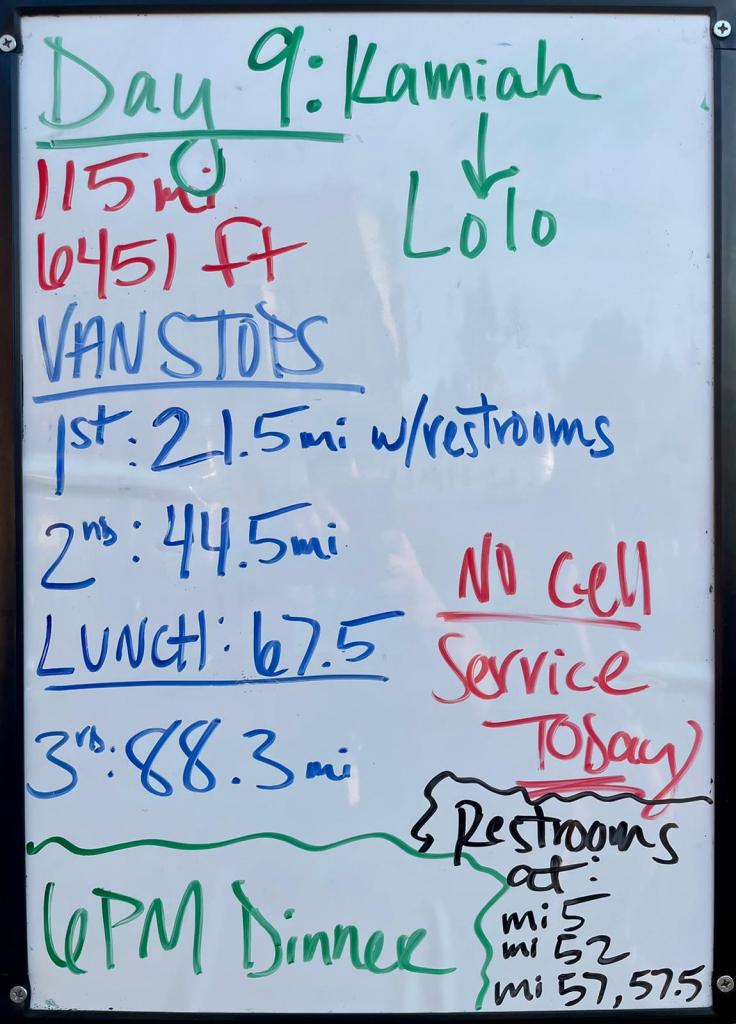 Day 9: Kamiah
↓
Lolo
115 mi
6451 ft
VAN STOPS
1st: 21.5 mi w/restrooms
2nd: 44.5 mi
LUNCH: 67.5
3rd: 88.3 mi
No Cell
Service
Today
Restrooms
at:
mi 5
mi 52
mi 57, 57.5
6PM Dinner